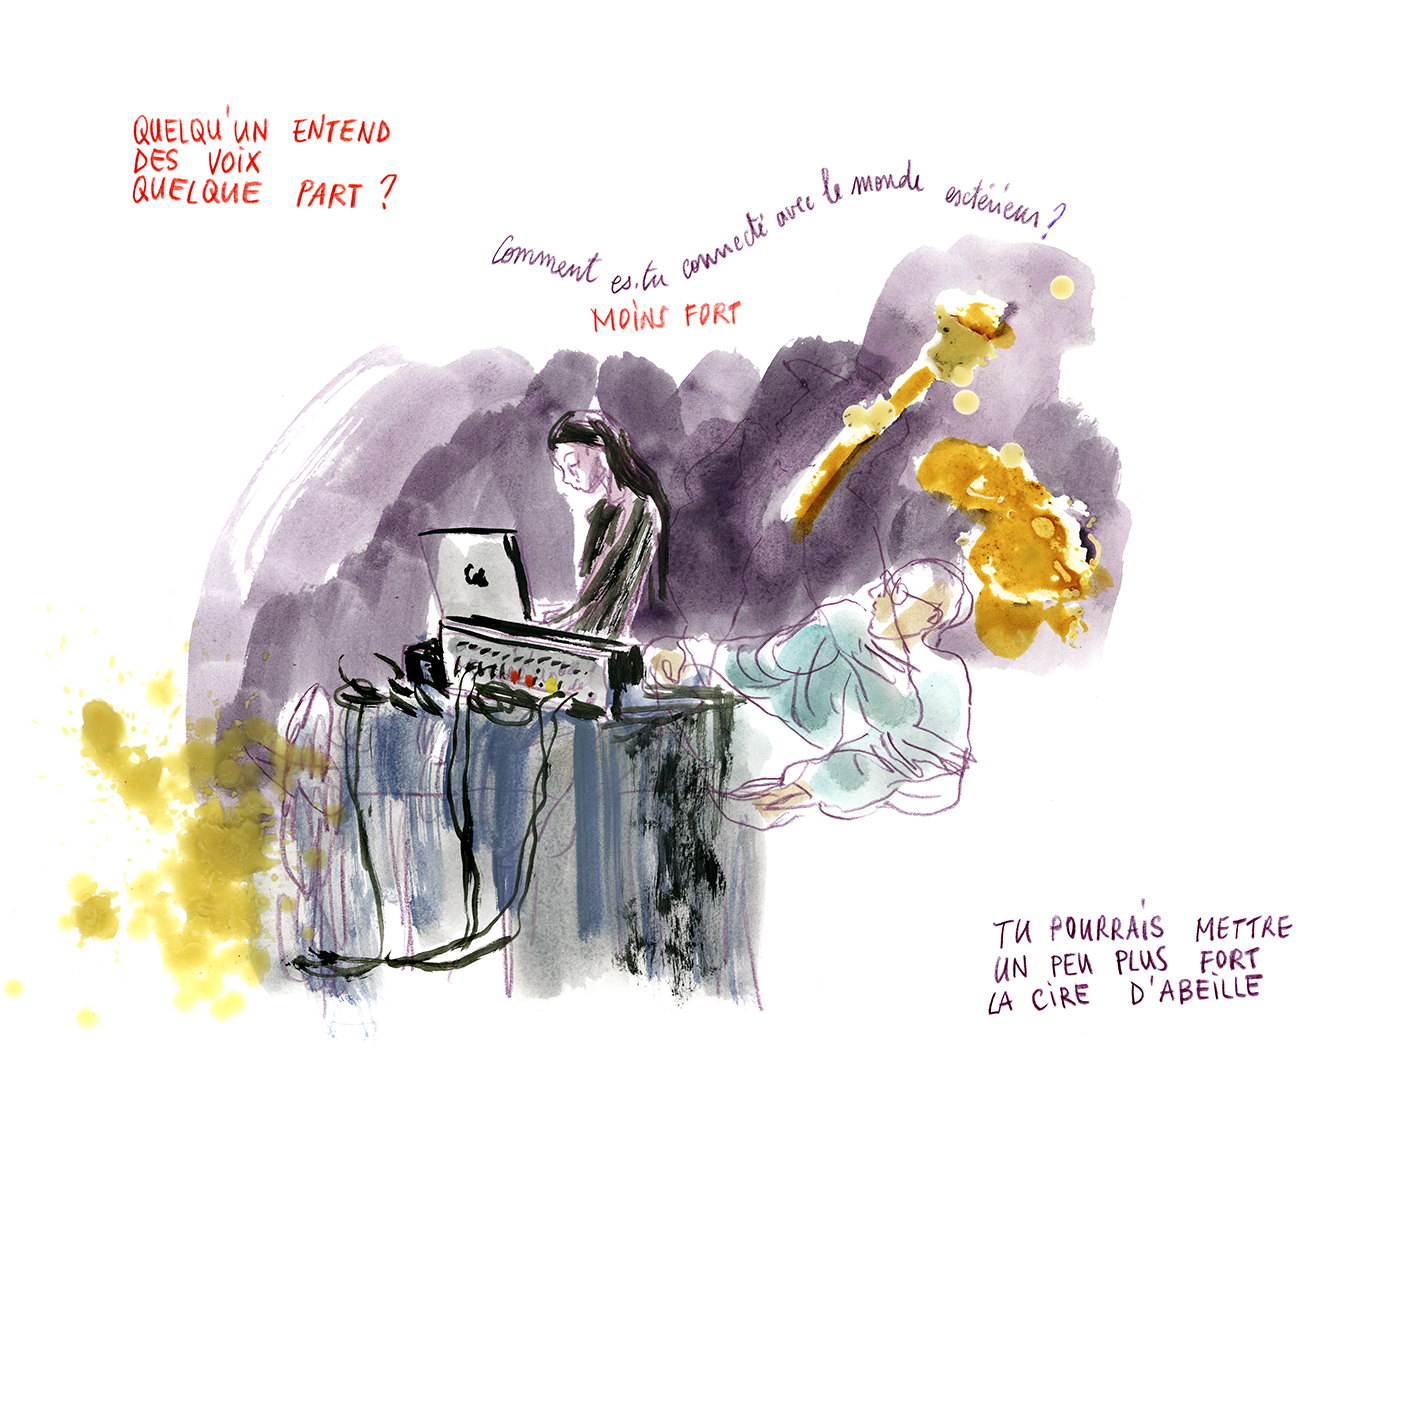 QUELQU'UN ENTEND
DES VOIX
QUELQUE PART ?
Comment es-tu connecté avec le monde esctérieur ?
MOINS FORT
TU POURRAIS METTRE
UN PEU PLUS FORT
LA CIRE D'ABEILLE